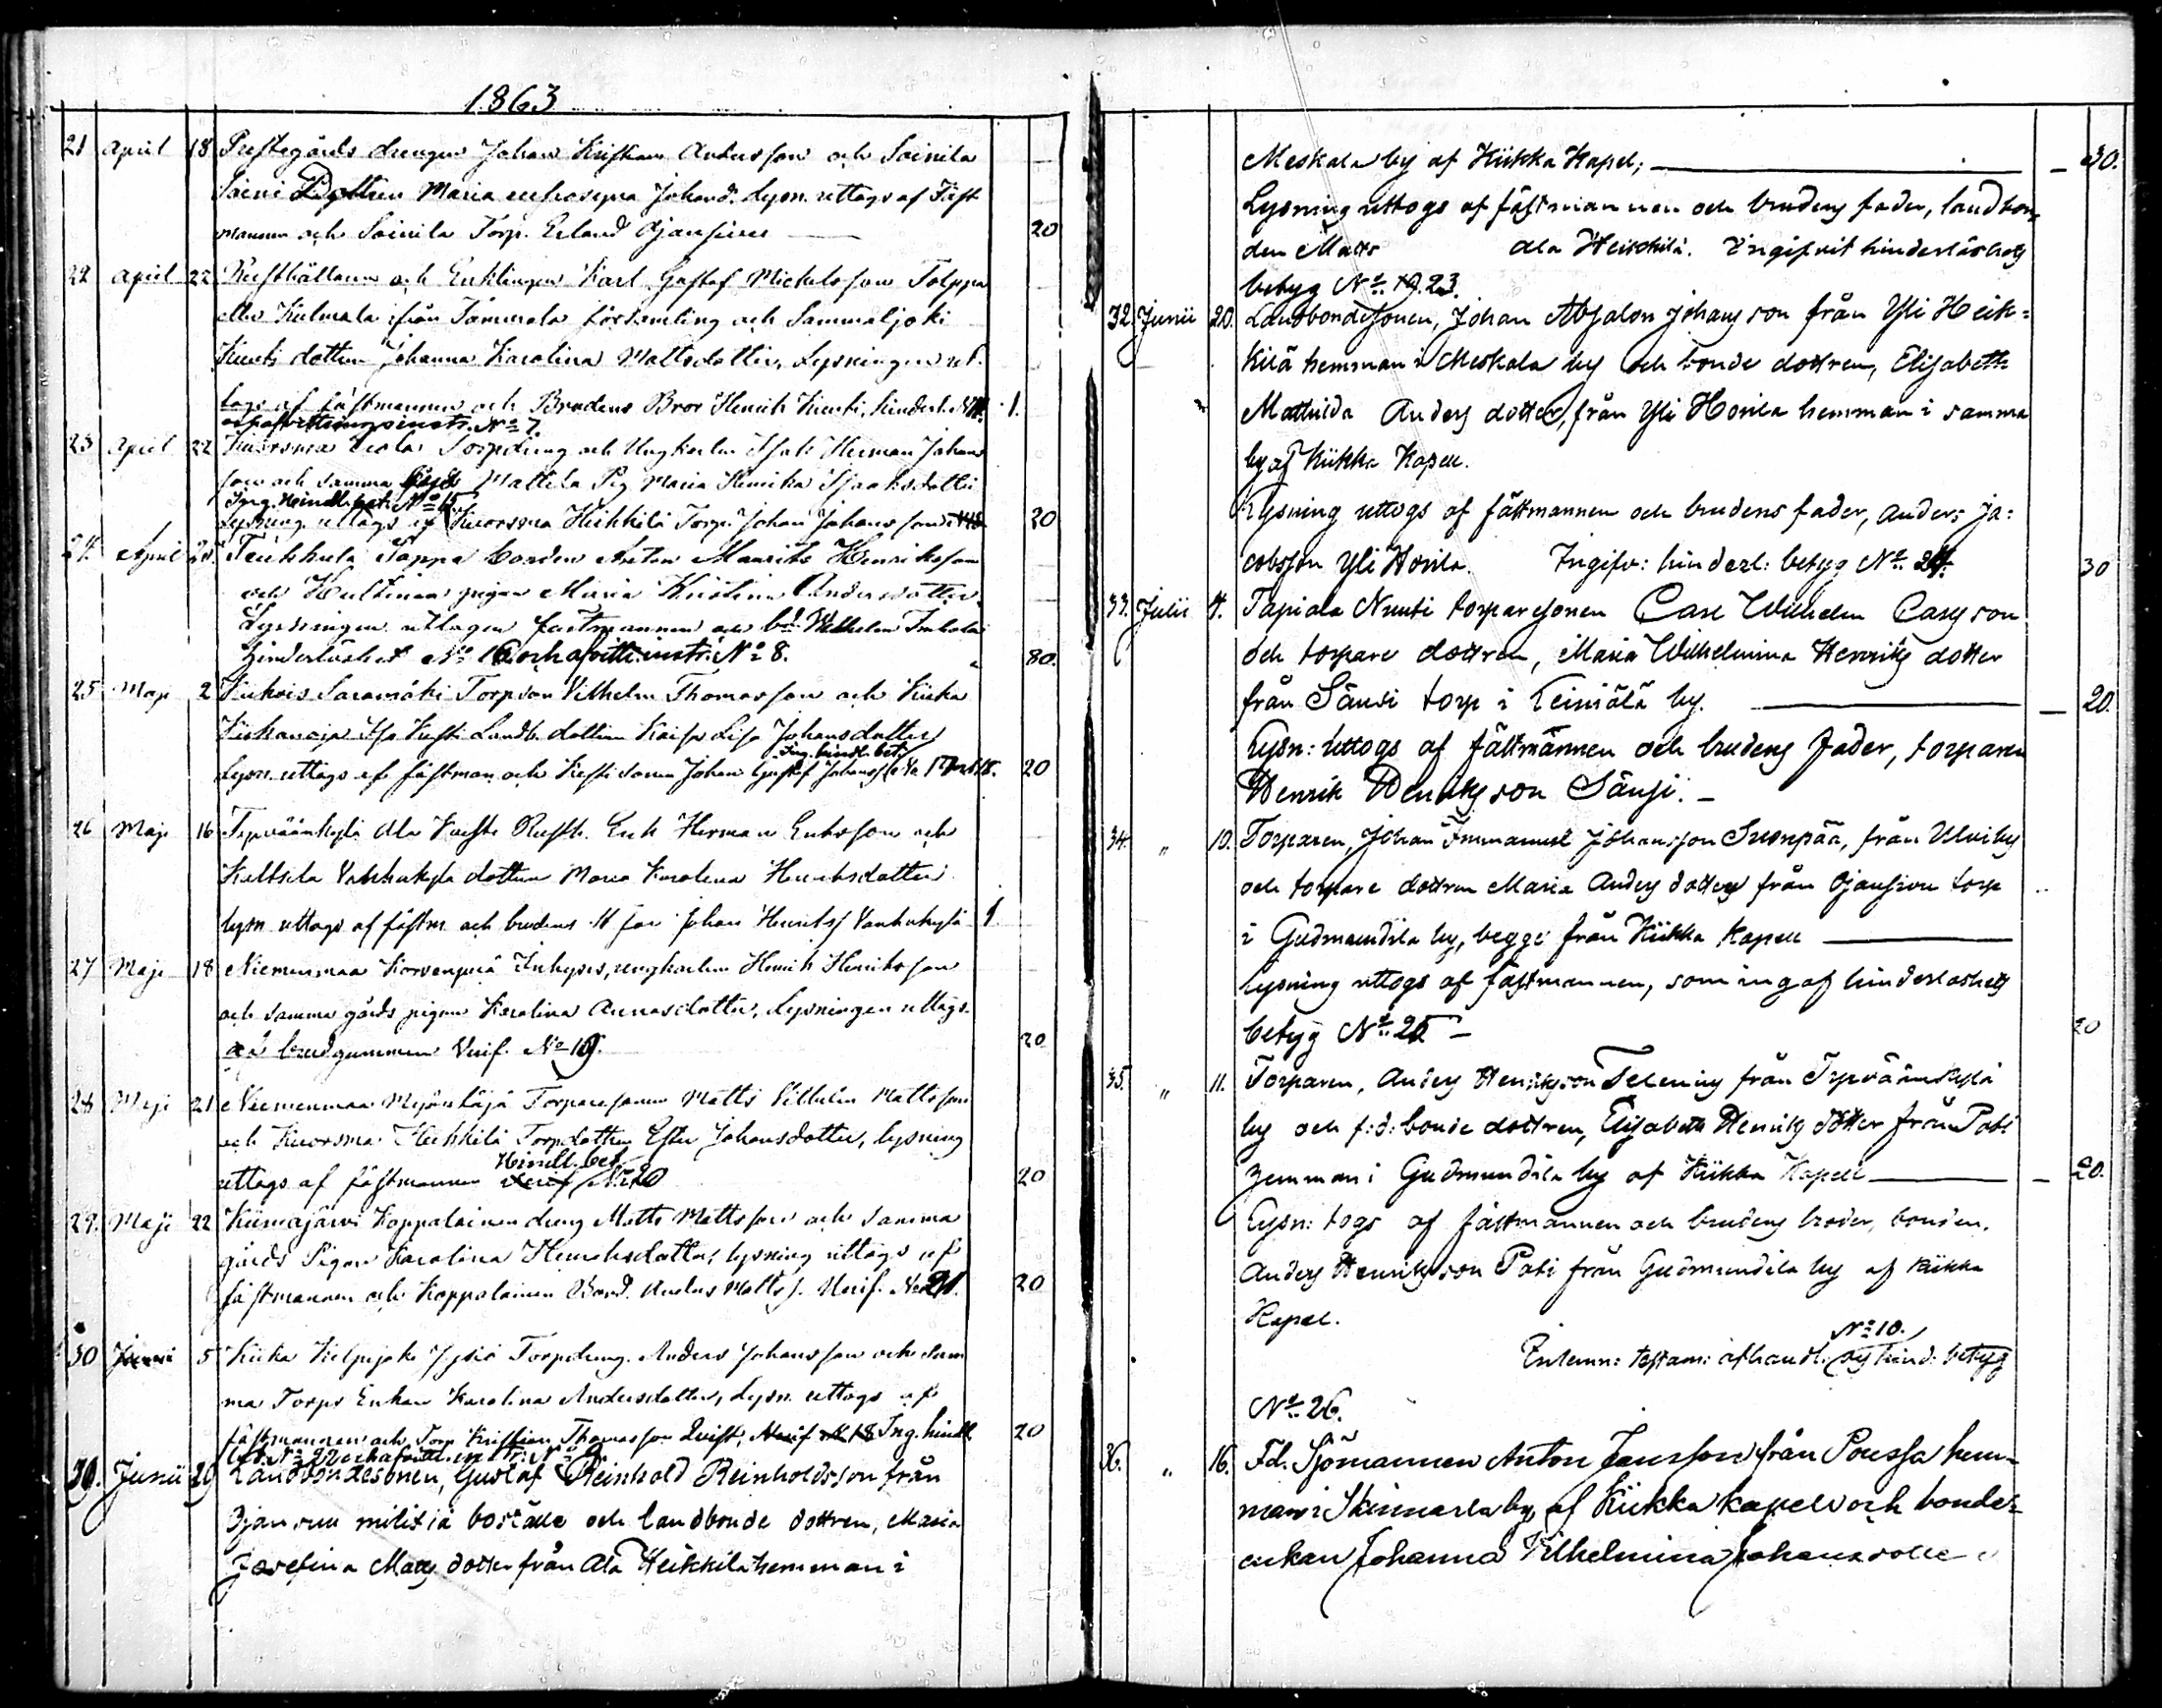 1863
21 April 18 Prestegårds drengen Johan Kristian Andersson och Soinila
Soini Dottren Maria Johansd. Lysn. uttogs af Fäst
mannen och Soinila Torp. Erland Ojansuu 20
22 April 22 Rusthållaren och Enklingen Karl Gustaf Michelsson Tolppa
eller Kulmala från Tammerala församling och Sammaljoki
Kuuti dottren Johanna Karolina Mattsdotter, Lysningen ut
togs af fästmannen och Brudens Bror Henrik Kuuti, hinderl. 1.
och afvittringsinstr. No 7.
23 April 22 Kuorsmaa Torpdreng och Ungkarlen Isak Herman Johans
son och samma Mattila Pig Maria Henrika Isaaksdotter
Ing. Hindl. bet. No 15
Lysning uttogs af Kuorsmaa Heikkilä Torp. Johan Johansson 20
24. April Pappa bonden Anton Maurits Henriksson
och pigan Maria Kristina Andersdotter.
Lysningen uttagen fästmannen och Wilhelm
Hinderlöshet No 16 och afvittr. instr. No 8. 80.
25 Maji 2 Saramäki Torpson Vilhelm Thomasson och Kiika
Kiikanoja Kusti Landb. dottren Kaisa Lisa Johansdotter
Ing. hindl. bet.
Lysn. uttogs af fästman och Kusti sonen Johan Gustaf Johanss. 20
26 Maji 16 Tyrväänkylä Ala Kuusto Rusth. Erik Herman Eriksson och
Vanhakylä dottren Maria Karolina Henriksdotter
lysn. uttogs af fästm. och brudens Johan Henriks. Vanhakylä 1
27 Maji 18 Niemenmaa Korvenperä Inhyses, ungkarlen Henrik Henriksson
och samma gårds pigan Karolina Annasdotter, Lysningen uttogs
af brudgummen Verif. No 19. 20
28 Maji 21 Niemenmaa Myöntäjä Torparesonen Matts Vilhelm Mattsson
och Kuorsmaa Heikkilä Torpdottren Ester Johansdotter, lysning
Hindl. bet.
uttogs af fästmannen No 20 20
29. Maji 22 Kiimajärvi Koppalainen dreng Matts Mattsson och samma
gårds Pigan Karolina Henriksdotter, lysning uttogs af
fästmannen och Koppalainen Bond. Anders Matts. Verif. No 21. 20
30 Junii 5 Kiika Kilpijoki Torpdreng Anders Johansson och sam
ma Torps Enkan Karolina Andersdotter, Lysn. uttogs af
fästmannen och Torp. Kristian Thomasson Qvist, Ing. hindl. 20
bet. No 22 och afvittr. instr. No 9.
30. Junii 20 Landbondesonen, Gustaf Reinhold Reinholdsson från
Ojansuu militiä boställe och landbonde dottren, Maria
Josefina Matts dotter från Ala Heikkilä hemman i
Meskala by af Kiikka Kapel; — 30.
Lysning uttogs af fästmannen och brudens fader, landbon-
den Matts Ala Heikkilä. Ingifvit hinderlöshets
betyg No 23.
32. Junii 20. Landbondesonen, Johan Absalon Johansson från Yli Heik=
kilä hemman i Meskala by och bonde dottren, Elisabeth
Mathilda Anders dotter, från Yli Honila hemman i samma
by af Kiikka Kapell.
Lysning uttogs af fästmannen och brudens fader, Anders Ja=
cobsson Yli Honila. Ingifv: hinderl: betyg No 24. 30
33. Julii 4. Tapiola Nuuti torparesonen Carl Wilhelm Carlsson
och torpare dottren, Maria Wilhelmina Henriks dotter
från Sänsi torp i Leiniälä by. — 20.
Lysn: uttogs af fästmannen och brudens fader, torparen
Henrik Henriksson Sänsi. —
34. „ 10. Torparen, Johan Immanuel Johansson Suonpää, från Ulvi by
och torpare dottren Maria Anders dotter från Ojansuu torp
i Gudmundila by, begge från Kiikka Kapell —
Lysning uttogs af fästmannen, som ingaf hinderlöshets
betyg No 25 — 20
35. „ 11. Torparen, Anders Henriksson Telenius från Tyrväänkylä
by och f:d: bonde dottren, Elisabeth Henriks dotter från Pati
hemman i Gudmundila by af Kiikka Kapell — 20.
Lysn: togs af fästmannen och brudens broder, bonden
Anders Henriksson Pati från Gudmundila by af Kiikka
Kapel.
No 10.
Inlemn: testam: afhandl: och hind: betyg
No 26.
36. „ 16. F.d. Sjömannen Anton Jansson från Poussa hem-
man i Skinnarla by, af Kiikka kapell och bonde-
enkan Johanna Vilhelmina Johansdotter